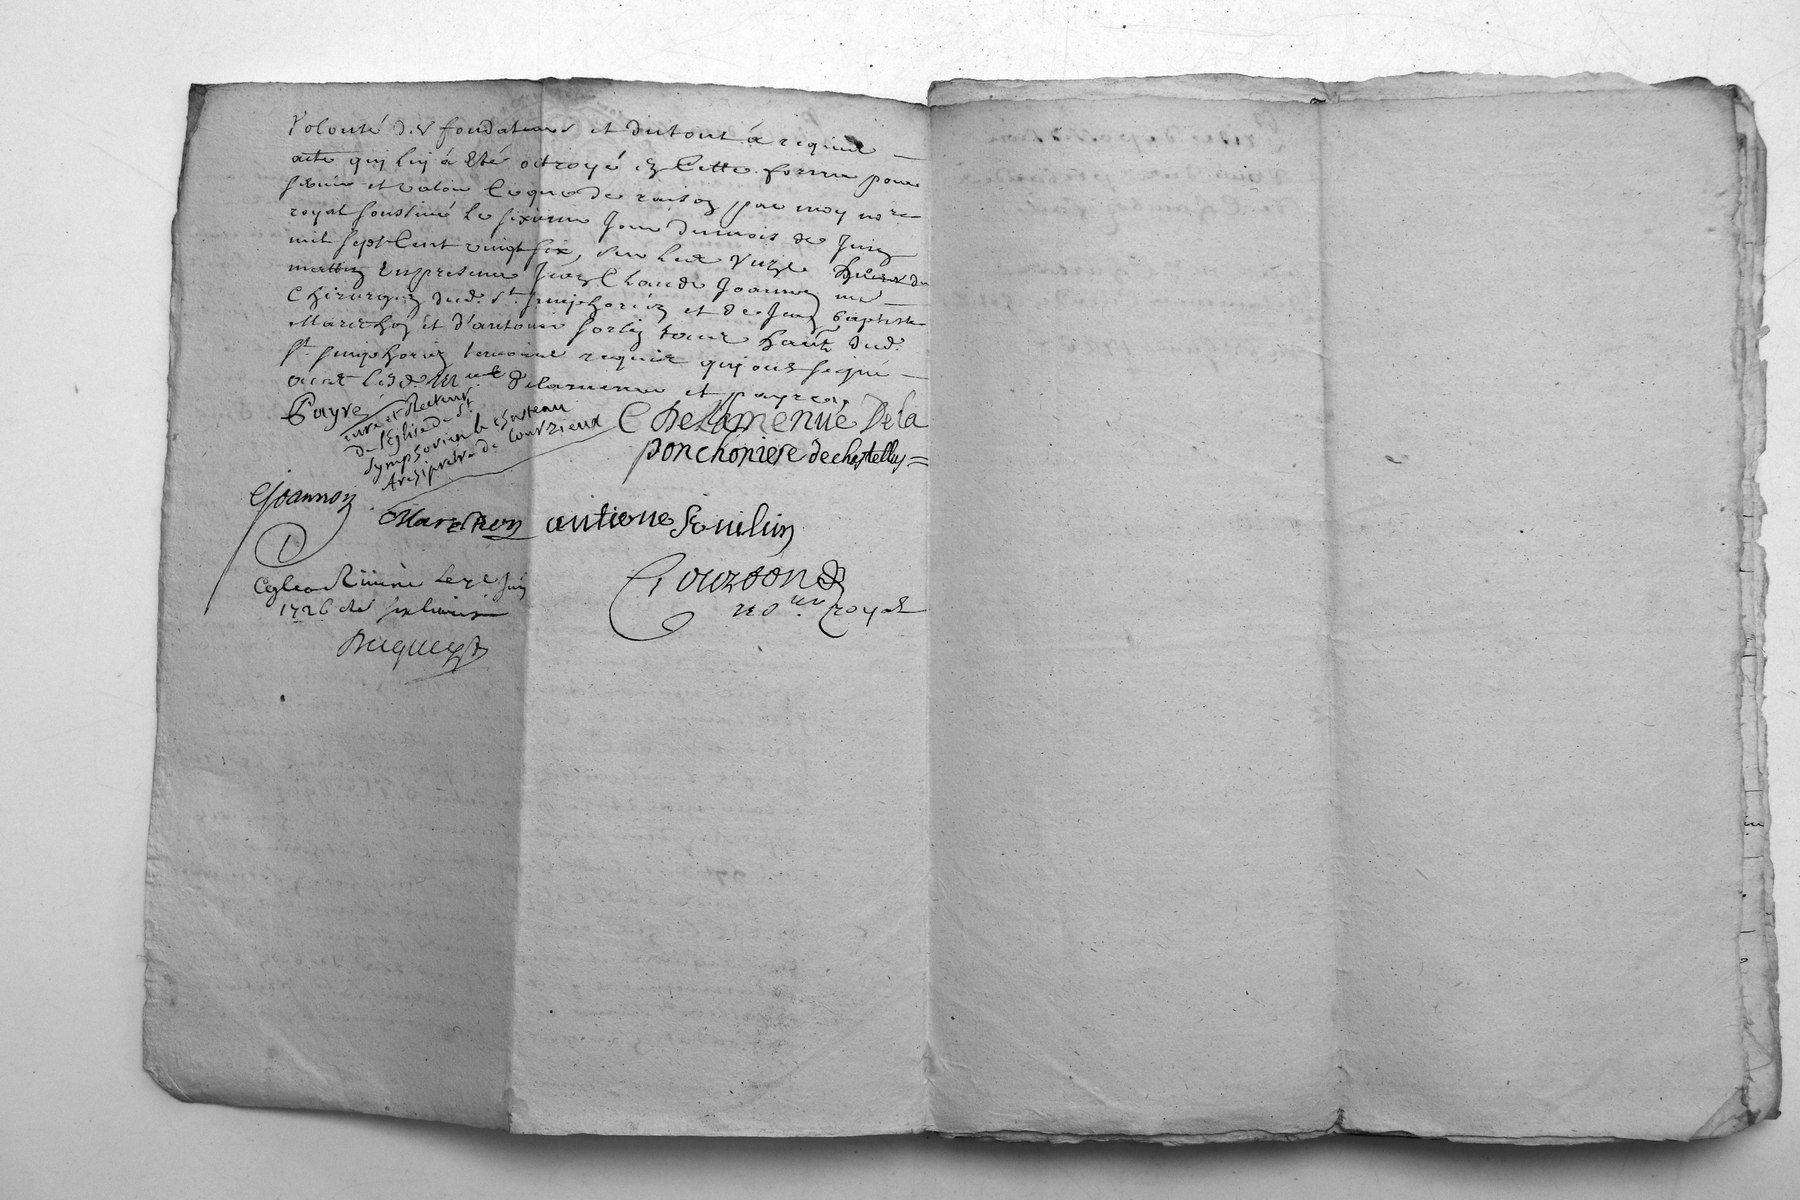 Volonté des fondateurs et dutout á requis
acte quj luj á été octroyé en Cette forme pour
servir et valoir Ceque de raison par moy no.re
royal soussiné Le sixieme Jour dumois de Juin
mil sept Cent vingt six, sur Les unze heures du
mattin En presence Jean Claude Joannon me
Chirurgien dud. St. simphorien et de Jean baptiste
Marechon et d'antoine tous habt. dud.
St. simphorien temoins requis quj ont signé
avec Lesd. delamenue et payre
Payre
curé et Recteur
de l'Eglise de St.
Symphorien le chasteau
Archipretre de Courzieux
C De Lamenue De la
ponchoniere dechastellus =
Cjoannon
Marechon antione
Gourdon
no.re royal
Le Juin
1726 six livres